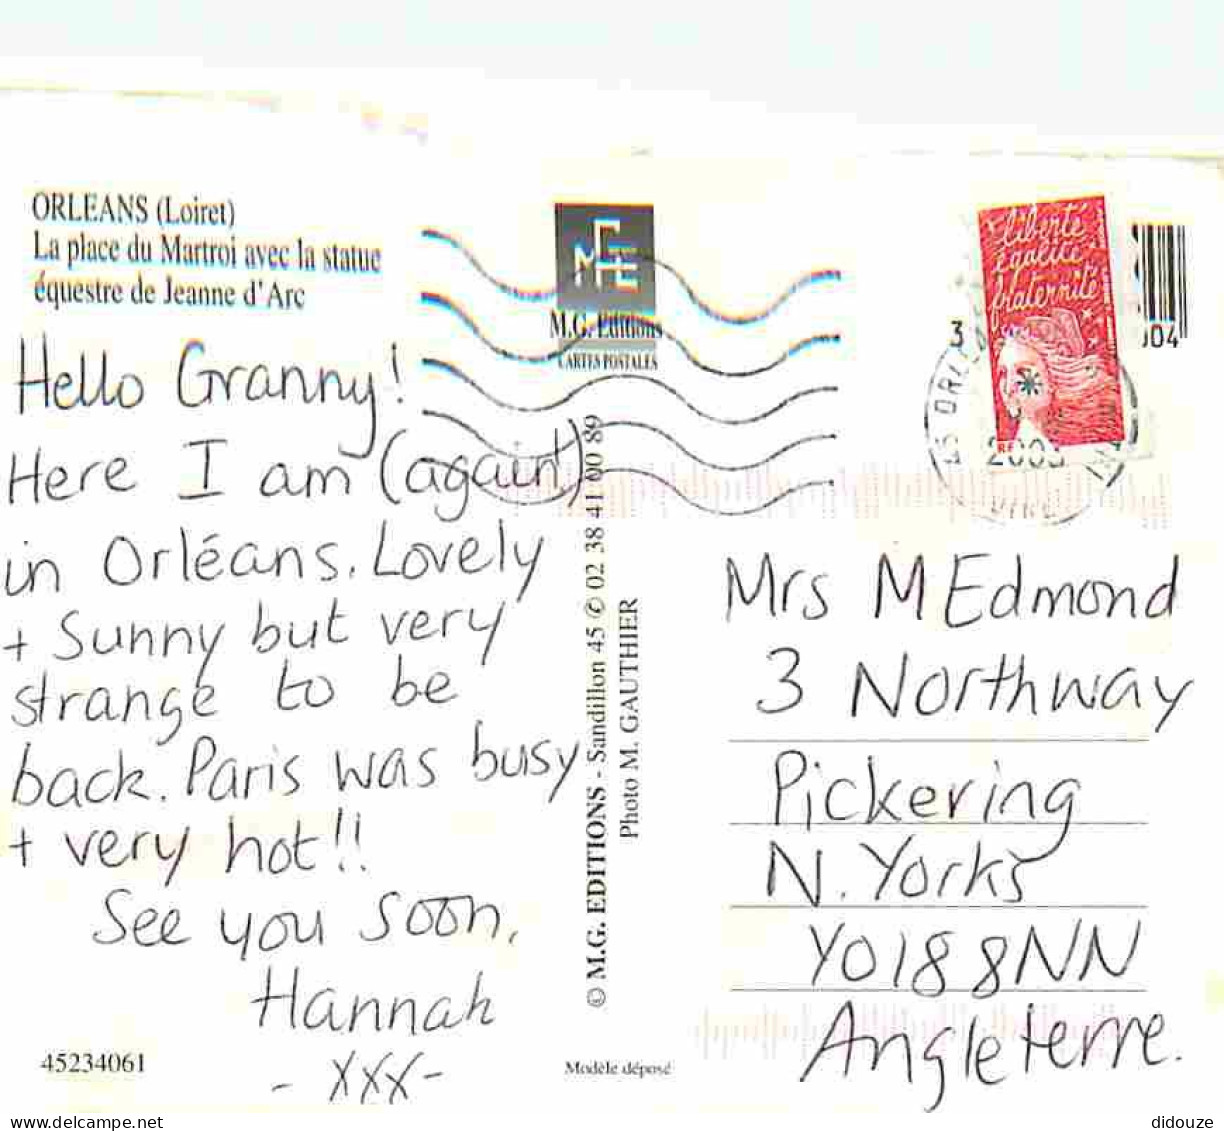 ORLEANS (Loiret)
La place du Martroi avec la statue
équestre de Jeanne d'Arc
Hello Granny!
Here I am (again!)
in Orléans. Lovely
+ Sunny but very
strange to be
back. Paris was busy
+ very hot!!
See you soon,
Hannah
- xxx -
45234061
M.G. Editions
CARTES POSTALES
© M.G. EDITIONS - Sandillon 45 ✆ 02 38 41 00 89
Photo M. GAUTHIER
Modèle déposé
liberté
égalité
fraternité
RF
3
45 ORLEANS
004
Mrs M Edmond
3 Northway
Pickering
N. Yorks
YO18 8NN
Angleterre.
delcampe.net
didouze